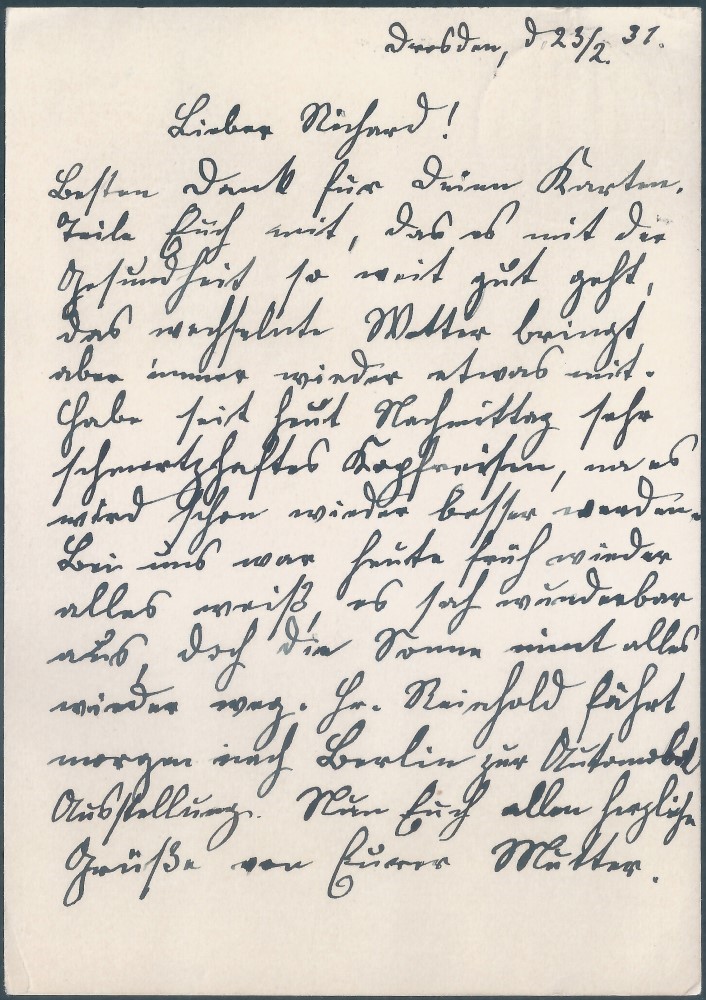 Dresden, d. 23/2. 31.
Lieber Richard!
Besten Dank für Deinen Karten.
Teile Euch mit, das es mit der
Gesundheit so weit gut geht,
das wechselnte Wetter bringt
aber immer wieder etwas mit.
Habe seit heut Nachmittag sehr
schmertzhaftes Kopfreisen, na es
wird schon wieder besser werden.
Bei uns war heute früh wieder
alles weiß, es sah wunderbar
aus, doch die Sonne nimt alles
wieder weg. Hr. Reinhold fährt
morgen nach Berlin zur Automobil
Ausstellung. Nun Euch allen herzliche
Grüße von Eurer Mutter.